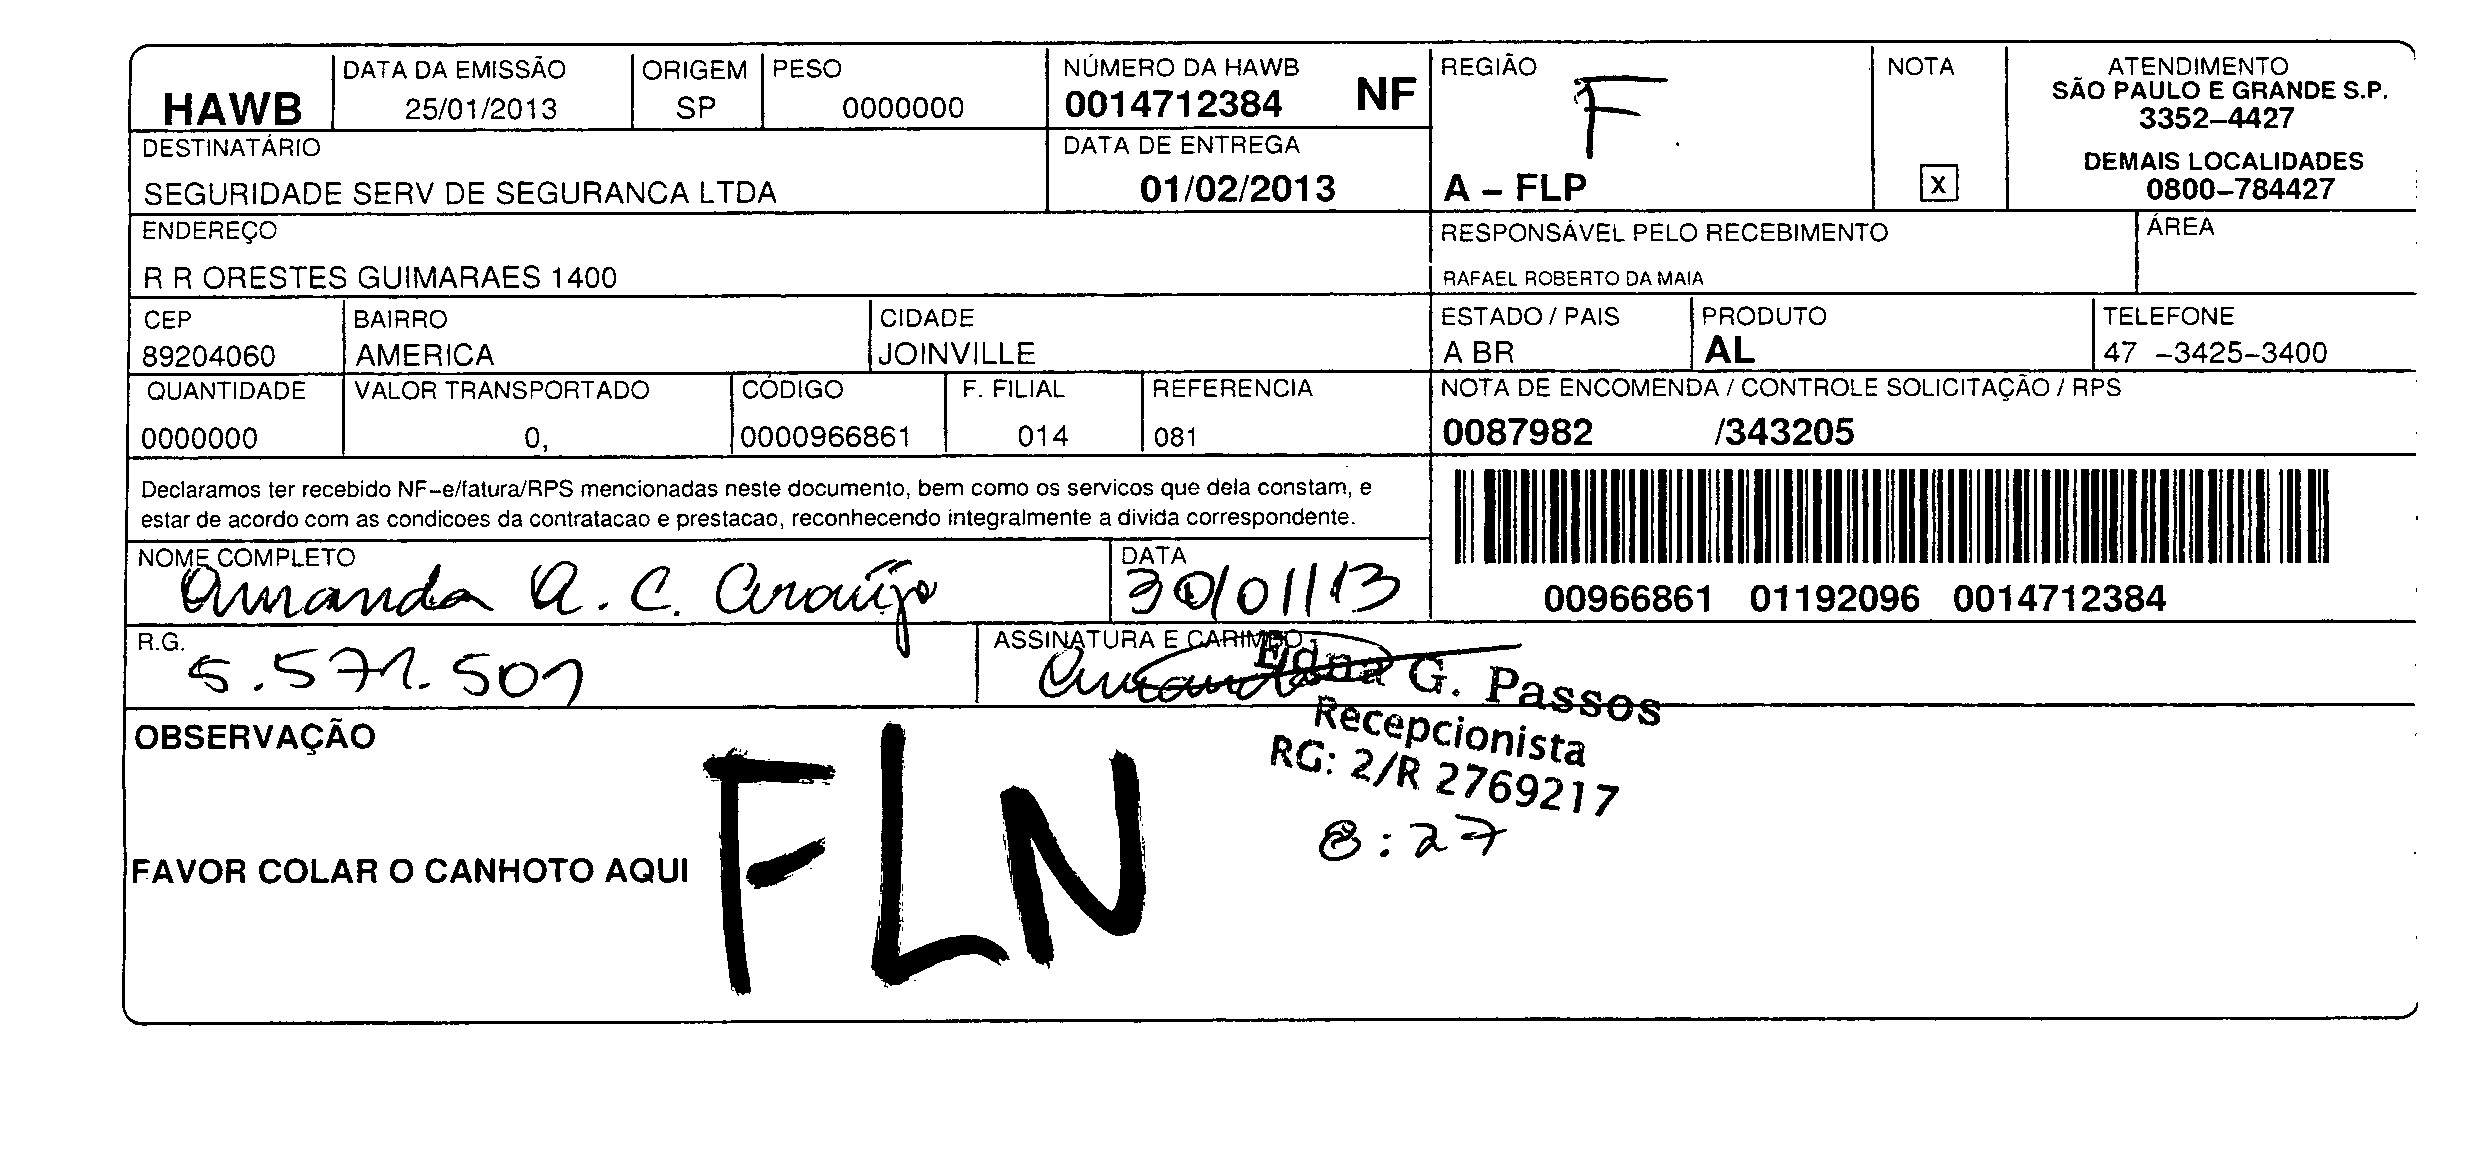 HAWB
DATA DA EMISSÃO
25/01/2013
ORIGEM
SP
PESO
0000000
NÚMERO DA HAWB
0014712384 NF
REGIÃO
F
A – FLP
NOTA
X
ATENDIMENTO
SÃO PAULO E GRANDE S.P.
3352–4427
DEMAIS LOCALIDADES
0800–784427
DESTINATÁRIO
SEGURIDADE SERV DE SEGURANCA LTDA
DATA DE ENTREGA
01/02/2013
ENDEREÇO
R R ORESTES GUIMARAES 1400
RESPONSÁVEL PELO RECEBIMENTO
RAFAEL ROBERTO DA MAIA
ÁREA
CEP
89204060
BAIRRO
AMERICA
CIDADE
JOINVILLE
ESTADO / PAIS
A BR
PRODUTO
AL
TELEFONE
47 –3425–3400
QUANTIDADE
0000000
VALOR TRANSPORTADO
0,
CÓDIGO
0000966861
F. FILIAL
014
REFERENCIA
081
NOTA DE ENCOMENDA / CONTROLE SOLICITAÇÃO / RPS
0087982 /343205
Declaramos ter recebido NF–e/fatura/RPS mencionadas neste documento, bem como os servicos que dela constam, e
estar de acordo com as condicoes da contratacao e prestacao, reconhecendo integralmente a divida correspondente.
00966861 01192096 0014712384
NOME COMPLETO
Amanda A. C. Araújo
DATA
30/01/13
R.G.
5.571.501
ASSINATURA E CARIMBO
Amanda
Edna G. Passos
Recepcionista
RG: 2/R 2769217
8:27
OBSERVAÇÃO
FLN
FAVOR COLAR O CANHOTO AQUI